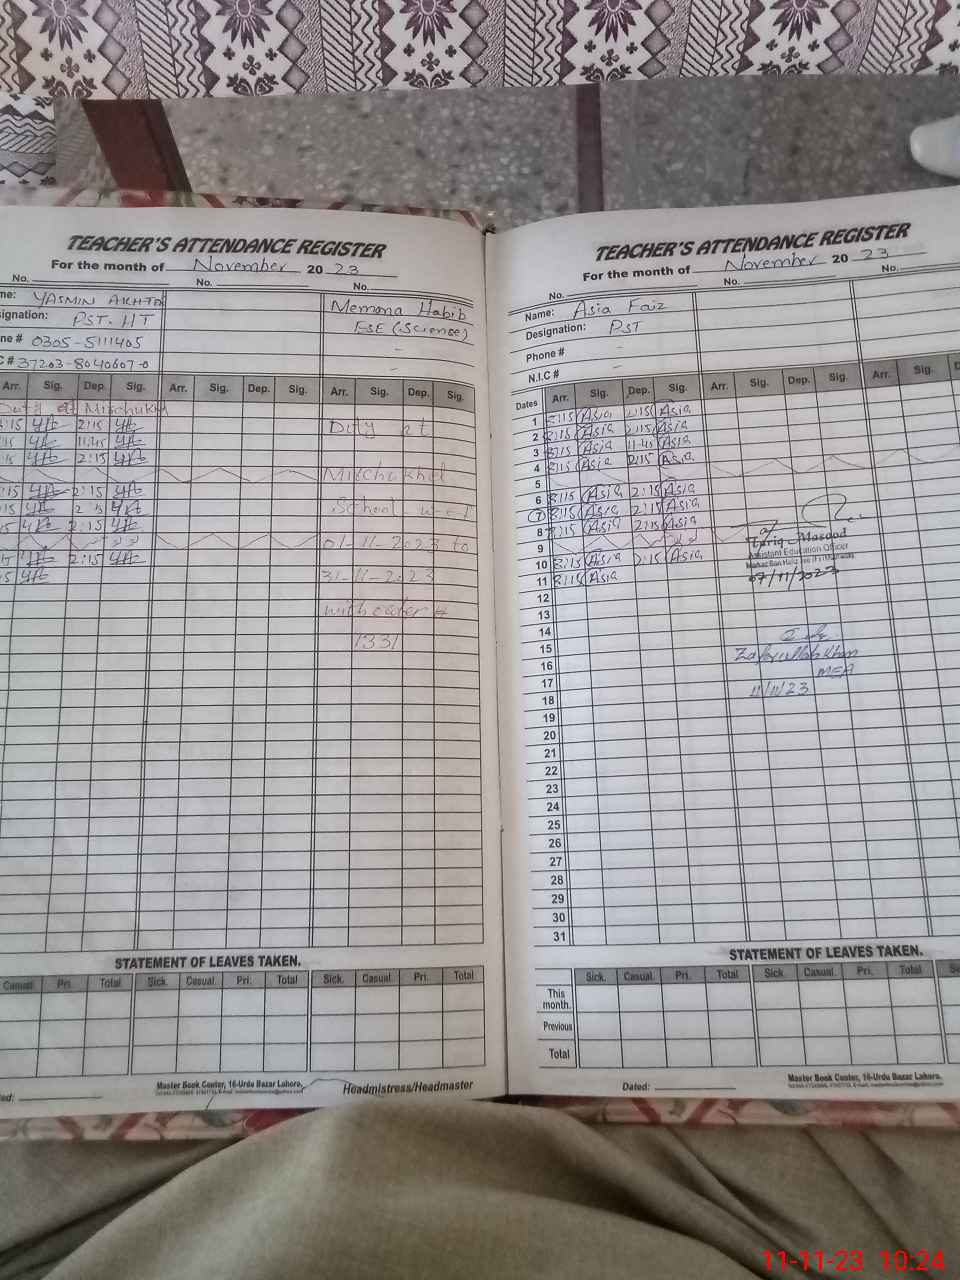 TEACHER'S ATTENDANCE REGISTER
For the month of November 20 23
No. No. No.
me: YASMIN AKHTA
Memona Habib
signation: PST. IIT
ESE (Science)
ne # 0305-5111405
C # 37203-8040607-0
Arr. Sig. Dep. Sig. Arr. Sig. Dep. Sig. Arr. Sig. Dep. Sig.
Duty at Mirchukh
:15 2:15
Duty at
:15 11:45
:15 2:15
:15 2:15
School w.e.f
:15 2:15
01-11-2023 to
15 2:15
31-11-2023
with order #
1331
STATEMENT OF LEAVES TAKEN.
Casual Pri. Total Sick. Casual. Pri. Total Sick. Casual. Pri. Total
Master Book Center, 16-Urdu Bazar Lahore.
Headmistress/Headmaster
ed:
TEACHER'S ATTENDANCE REGISTER
For the month of November 20 23
No. No. No.
Name: Asia Faiz
Designation: PST
Phone # -
N.I.C #
Dates Arr. Sig. Dep. Sig. Arr. Sig. Dep. Sig. Arr. Sig. D
1 8:15 Asia 2:15 Asia
2 8:15 Asia 2:15 Asia
3 8:15 Asia 11:45 Asia
4 8:15 Asia 2:15 Asia
5
6 8:15 Asia 2:15 Asia
7 8:15 Asia 2:15 Asia
8 8:15 Asia 2:15 Asia
9
10 8:15 Asia 2:15 Asia
11 8:15 Asia
Tariq Masood
Assistant Education Officer
07/11/2023
12
13
14
15
16
17
18
Zafarullah Khan
MEA
11/11/23
19
20
21
22
23
24
25
26
27
28
29
30
31
STATEMENT OF LEAVES TAKEN.
Sick. Casual. Pri. Total Sick. Casual. Pri. Total Si
This month.
Previous
Total
Dated:
Master Book Center, 16-Urdu Bazar Lahore.
11-11-23 10:24